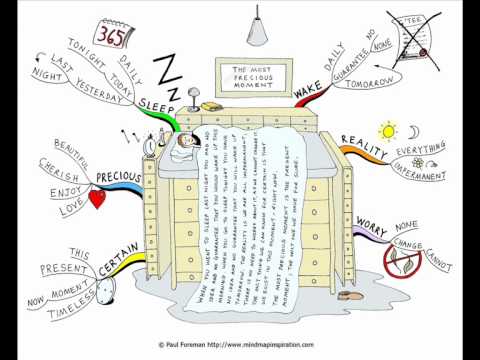 THE MOST
PRECIOUS
MOMENT
WAKE
DAILY
GUARANTEE
NO
NONE
TOMORROW
REALITY
EVERYTHING
IMPERMANENT
WORRY
NONE
CHANGE
CANNOT
CERTAIN
THIS
PRESENT
NOW MOMENT
TIMELESS
PRECIOUS
BEAUTIFUL
CHERISH
ENJOY
LOVE
SLEEP
365
DAILY
TONIGHT
TODAY
LAST
NIGHT
YESTERDAY
Z
Z
Z
WHEN YOU WENT TO SLEEP LAST NIGHT YOU HAD NO
IDEA AND NO GUARANTEE THAT YOU WOULD WAKE UP THIS
MORNING. WHEN YOU GO TO SLEEP TONIGHT YOU HAVE
NO IDEA AND NO GUARANTEE THAT YOU WILL WAKE UP
TOMORROW. THE REALITY IS WE ARE ALL IMPERMANENT.
THERE IS NO NEED TO WORRY ABOUT IT, AS WE CANNOT CHANGE IT.
THE ONLY THING WE CAN KNOW FOR CERTAIN IS THAT
WE EXIST IN THIS MOMENT - RIGHT NOW.
THE MOST PRECIOUS MOMENT IS THE PRESENT
MOMENT; THE ONLY ONE WE HAVE FOR SURE.
© Paul Foreman http://www.mindmapinspiration.com